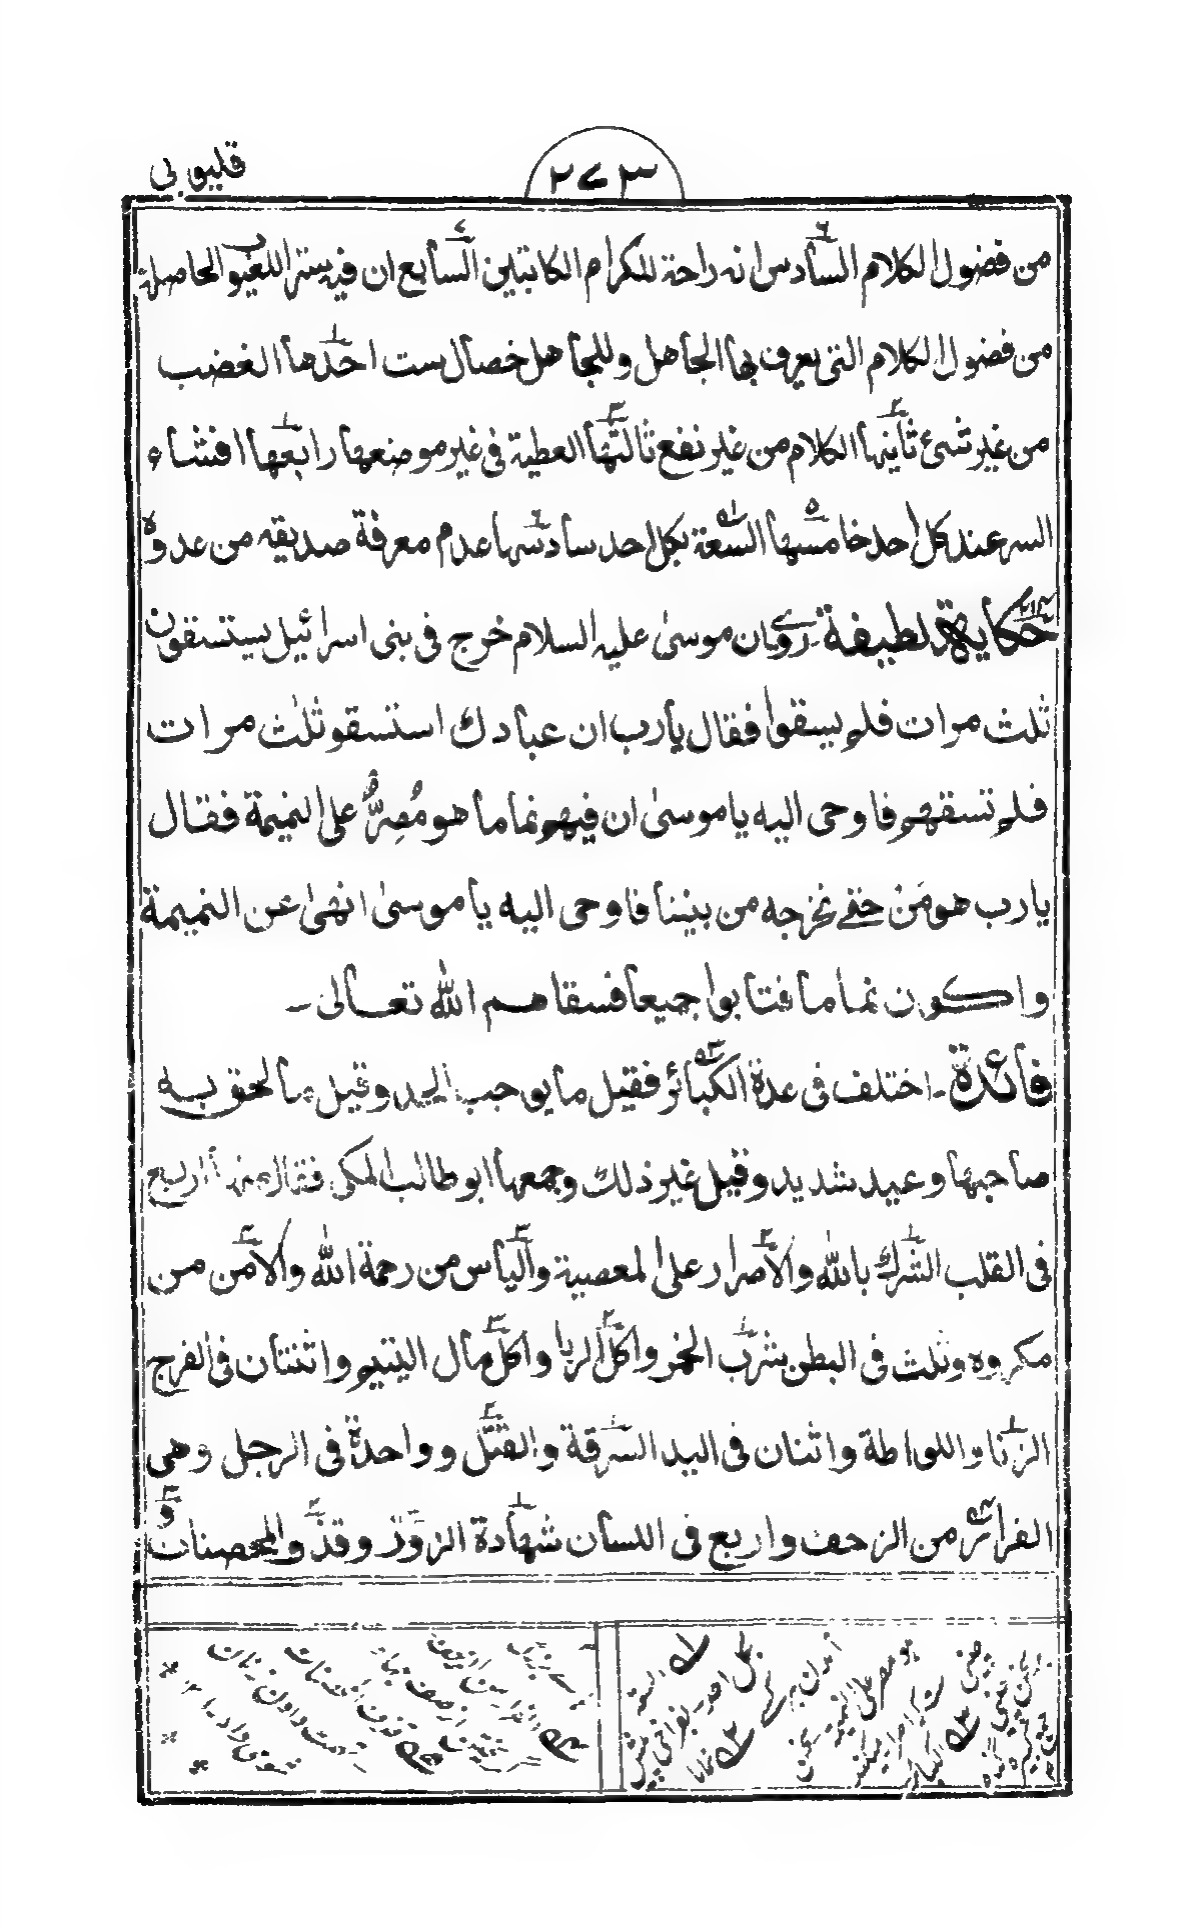 قليوبي
٢٧٣
من فضول الكلام السادس انه راحة للكرام الكاتبين السابع ان فيه ستر اللعيوب الحاصلة
من فضول الكلام التى يعرف بها الجاهل وللجاهل خصال ست احدها الغضب
من غير شئ ثانيها الكلام من غير نفع ثالثها العطية فى غير موضعها رابعها افشاء
السر عند كل احد خامسها السعة بكل احد سادسها عدم معرفة صديقه من عدوه
حكاية لطيفة روى ان موسىٰ عليه السلام خرج فى بنى اسرائيل يستسقون
ثلث مرات فلم يسقوا فقال يارب ان عبادك استسقو ثلٰث مرات
فلم تسقهم فاوحى اليه يا موسىٰ ان فيهم نماما هو مُصِرٌّ على النميمة فقال
يارب هو مَنْ حتے نخرجه من بيننا فاوحى اليه يا موسىٰ انهىٰ عن النميمة
واكون نماما فتابوا جميعا فسقاهم الله تعالى ۔
فائدة ۔ اختلف فى عدة الكبائر فقيل ما يوجب الحد وقيل ما لحق به
صاحبها وعيد شديد وقيل غير ذلك وجمعها ابو طالب المكى فقال منها اربع
فى القلب الشرك بالله والاصرار على المعصية والياس من رحمة الله والامن من
مكروه وثلث فى البطن شرب الخمر واكل الربا واكل مال اليتيم واثنتان فى الفرج
الزنا واللواطة واثنان فى اليد السرقة والقتل وواحدة فى الرجل وهى
الفرار من الزحف واربع فى اللسان شهادة الزور وقذف المحصنات و